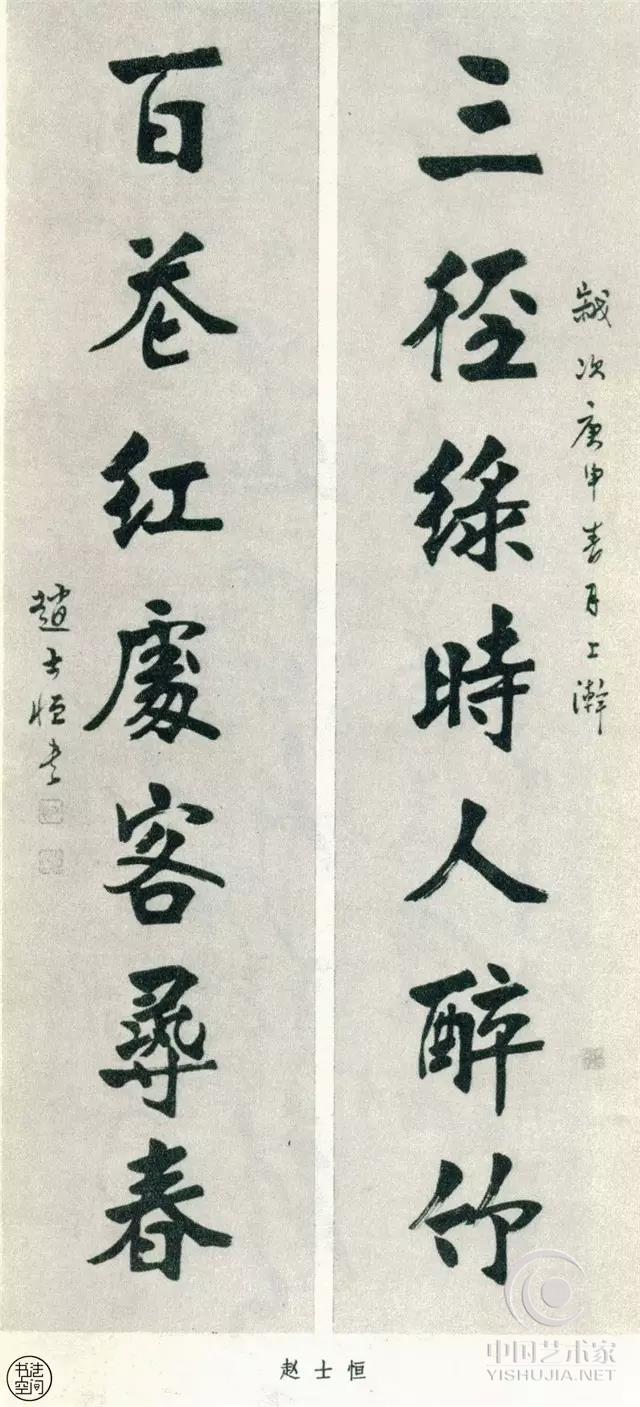 三徑綠時人醉竹
歲次庚申春月上澣
百巷紅處客尋春
趙士恒書
赵士恒
书法空间
中国艺术家
YISHUJIA.NET